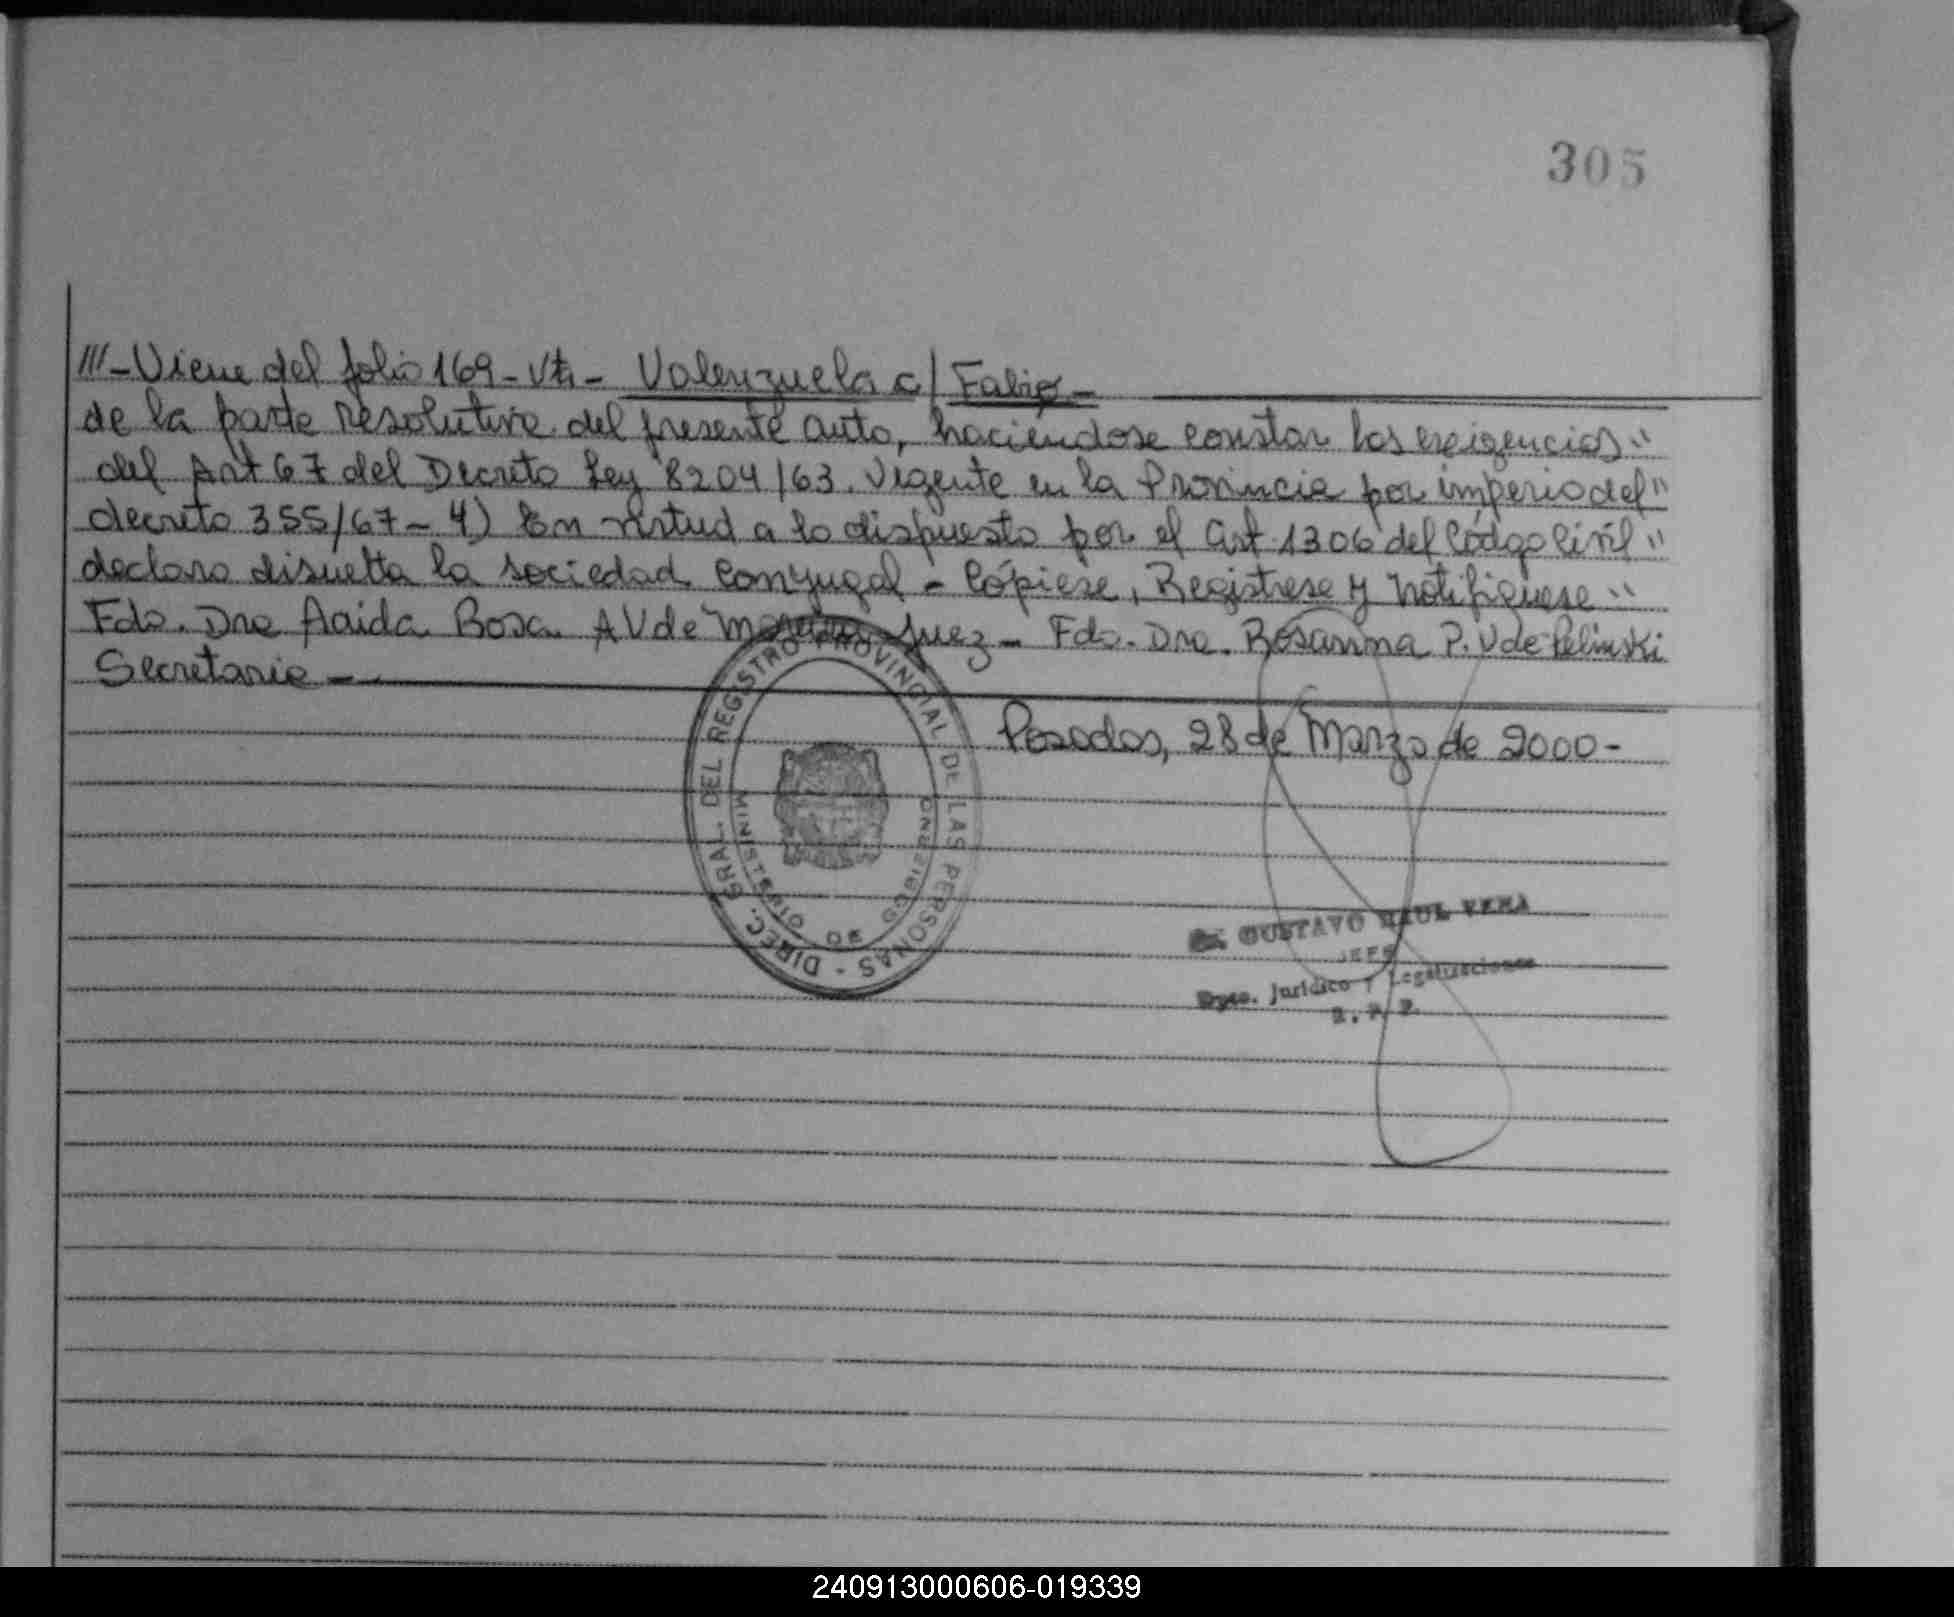 305
///-Viene del folio 169-Vta- Valenzuela c/ Fabio-
de la parte Resolutiva del presente auto, haciéndose constar las exigencias"
del Art 67 del Decreto Ley 8204/63. Vigente en la Provincia por imperio del"
decreto 355/67- 4) En virtud a lo dispuesto por el Art. 1306 del Código Civil"
declaro disuelta la sociedad conyugal - Cópiese, Regístrese y Notifíquese"
Fdo. Dra Aaida Rosa A V de Juez- Fdo. Dra. Rosanna P. V de Pelinski
Secretaria-
Posadas, 28 de Marzo de 2000-
DIREC. GRAL. DEL REGISTRO PROVINCIAL DE LAS PERSONAS -
MINISTERIO DE GOBIERNO
GUSTAVO RAUL VERA
JEFE
Dpto. Jurídico y Legalizaciones
R. P. P.
240913000606-019339